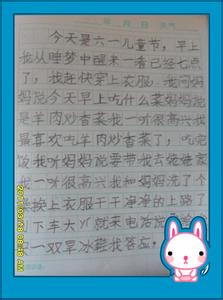 年 月 日
今天是六一儿童节,早上
我从睡梦中醒来一看已经七点
了,我赶快穿上衣服。我问妈
妈说今天早上吃什么菜妈妈说
是羊肉炒香菜我一听很高兴我
最喜欢吃羊肉炒香菜了,吃完
饭我听妈妈说要带我去姥姥家
我一听很高兴我和妈妈洗了个
澡换上衣服干干净净的上路了
下车大 就来电话说给
一双旱冰鞋我答应